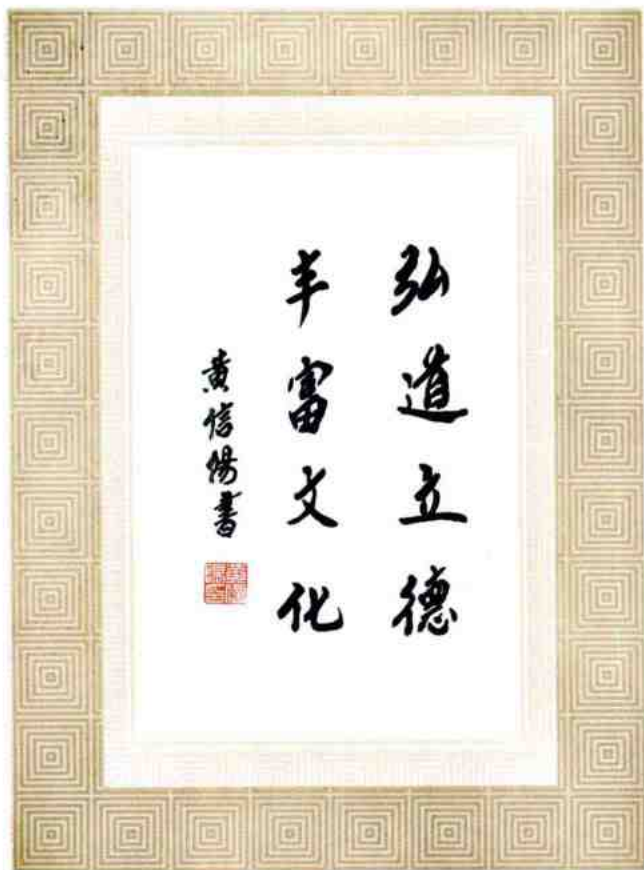 弘道立德
丰富文化
黄信阳書